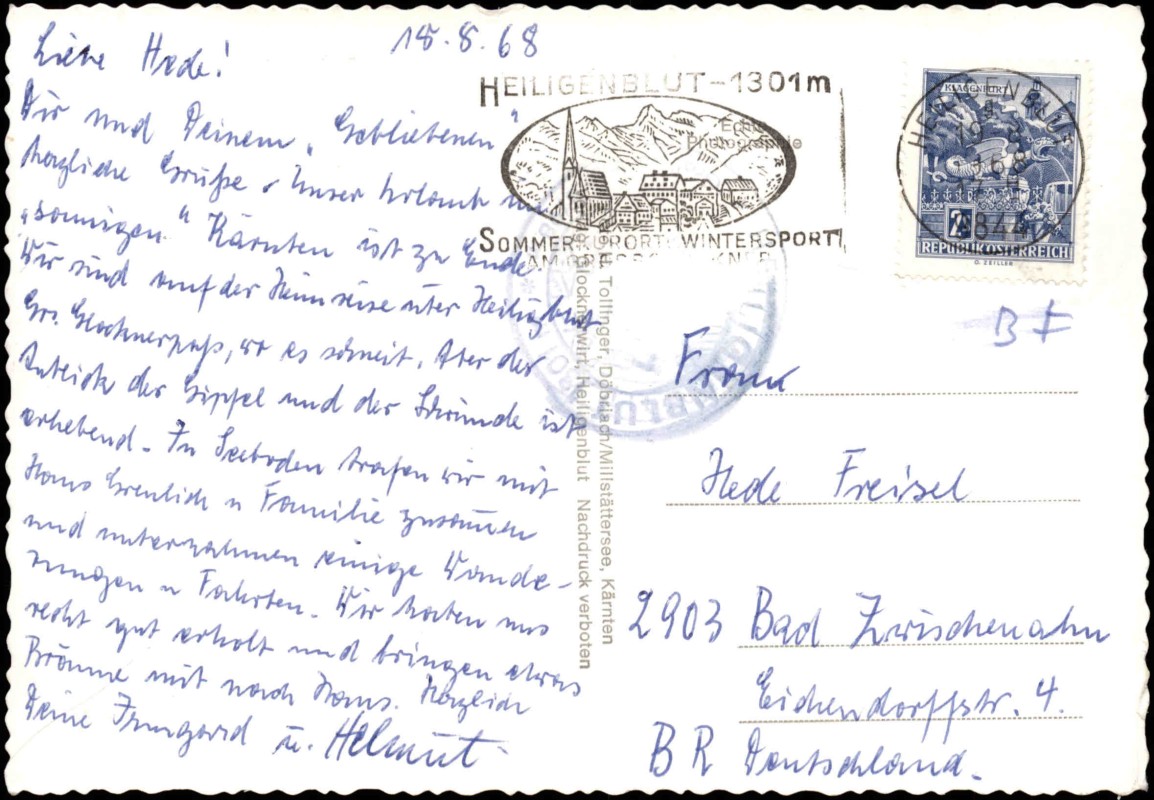 18.8.68
Liebe Hede!
Dir und Deinem „Gebliebenen"
herzliche Grüße. Unser Urlaub im
„sonnigen" Kärnten ist zu Ende.
Wir sind auf der Heimreise über Heiligblut
Gr. Glocknerpaß, wo es schneit. Aber der
Anblick der Gipfel und der Schründe ist
erhebend. In Seeboden trafen wir mit
Hans u Familie zusammen
und unternahmen einige Wande-
rungen u Fahrten. Wir haben uns
recht gut erholt und bringen etwas
Bräune mit nach Haus. Herzlich
Deine Irmgard u. Helmut
HEILIGENBLUT-1301m
Echte
Photographie
SOMMERKURORT WINTERSPORT
AM GROSSGLOCKNER
HEILIGENBLUT
9844
KLAGENFURT
2S
REPUBLIK ÖSTERREICH
G. ZEILLER
Tollinger, Döbriach/Millstättersee, Kärnten
Glocknerwirt, Heiligenblut Nachdruck verboten
B F
Frau
Hede Freisel
2903 Bad Zwischenahn
Eichendorffstr. 4.
BR Deutschland.